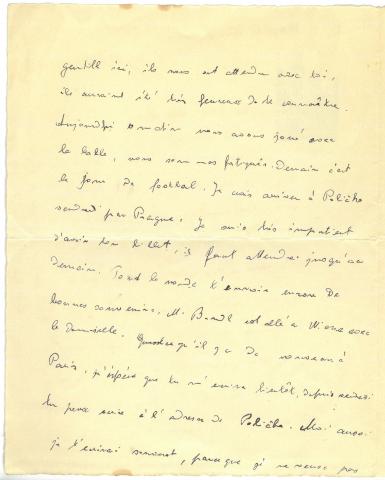 gentille ici, ils nous ont attendu avec toi,
ils auraient été très heureux de te connaître.
Aujourd'hui matin nous avons joué avec
la balle, nous sommes fatigués. Demain c'est
le jour de football. Je vais arriver à
par Prague. Je suis très impatient
d'avoir ton billet, il faut attendre jusqu'à
demain. Tout le monde t'envoie encore de
bonnes souvenirs. M. est allé à avec
la demoiselle. qu'il y a de nouveau à
Paris, j'espère que tu m'écriras bientôt, depuis
tu peux écrire à l'adresse de Moi aussi
je t'écrirai souvent, parce que je ne veux pas